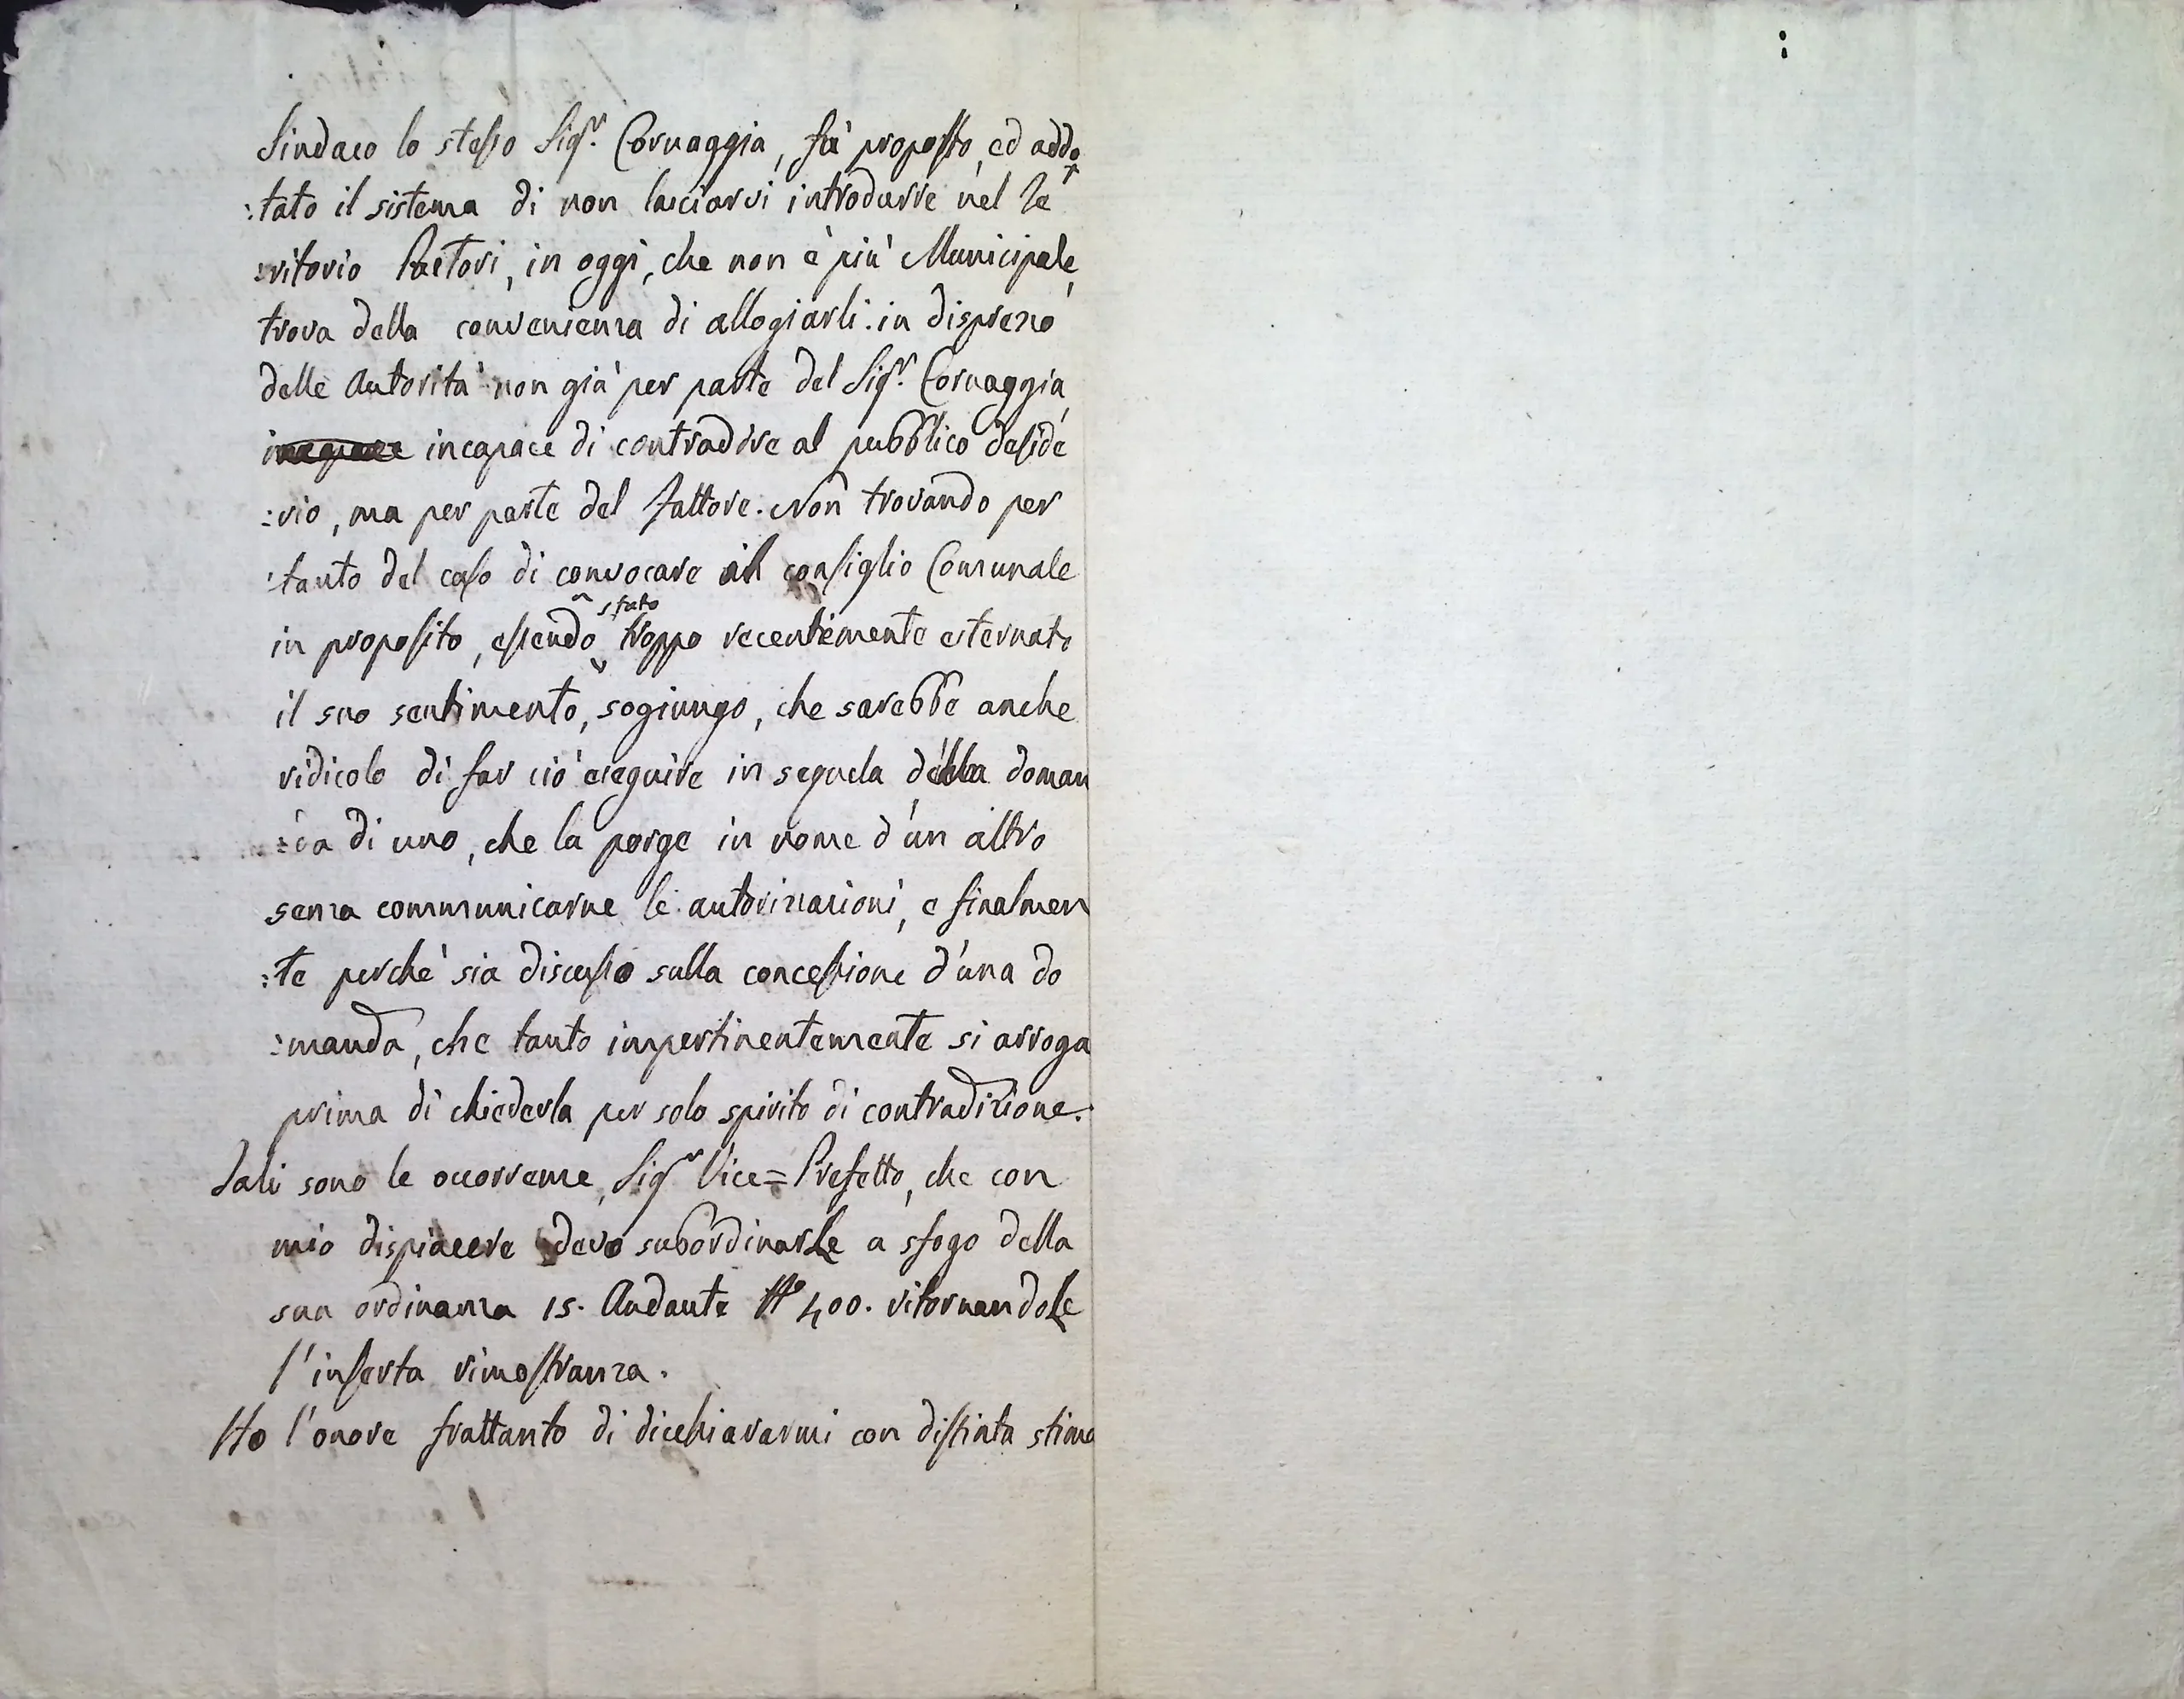 Sindaco lo stesso Sigr. Cornaggia, fù proposto, ed addo
:tato il sistema di non lasciarsi introdurre nel Te
:ritorio Pastori, in oggi, che non è più Municipale,
trova della convenienza di allogiarli in disprezzo
delle Autorità non già per parte del Sigr. Cornaggia,
incapace di contradire al pubblico deside
:rio, ma per parte del Fattore. Non trovando per
:tanto del caso di convocare il consiglio Comunale
in proposito, essendo stato troppo recentemente esternato
il suo sentimento, sogiungo, che sarebbe anche
ridicolo di far ciò eseguire in sequela della doman
:da di uno, che la porge in nome d'un altro
senza communicarne le autorizzazioni, e finalmen
:te perchè sia discusso sulla concessione d'una do
:manda, che tanto impertinentemente si arroga
prima di chiederla per solo spirito di contradizione.
Tali sono le occorrenze, Sigr Vice=Prefetto, che con
mio dispiacere devo subordinarLe a sfogo della
sua ordinanza 15. Andante No 400. ritornandoLe
l'inserta rimostranza.
Ho l'onore frattanto di dicchiararmi con distinta stima